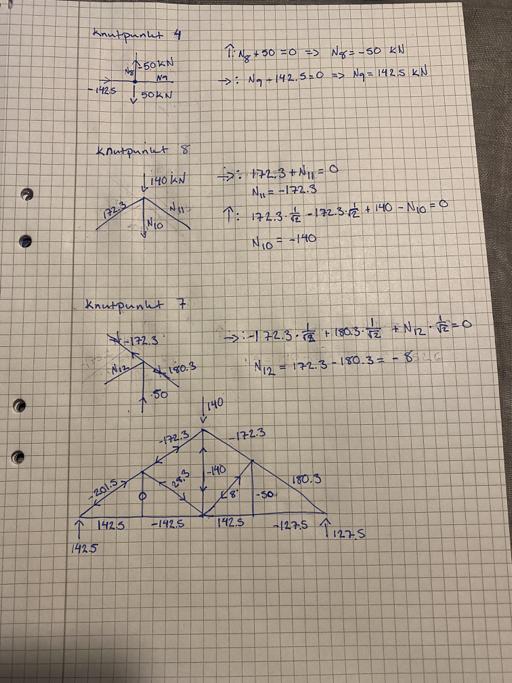 Knutpunkt 4
↑: N8+50=0 => N8=-50 kN
50KN
N8
N9
-142.5
50KN
→: N9-142.5=0 => N9=142.5 KN
Knutpunkt 8
140 kN
172.3
N11
N10
→: 172.3+N11=0
N11=-172.3
↑: 172.3·1/√2-172.3·1/√2+140-N10=0
N10=-140
Knutpunkt 7
-172.3
N12
180.3
50
→: -172.3·1/√2+180.3·1/√2+N12·1/√2=0
N12=172.3-180.3=-8
140
-172.3
-172.3
-201.5
28.3
-140
180.3
0
8
-50
142.5
-142.5
142.5
-127.5
142.5
127.5